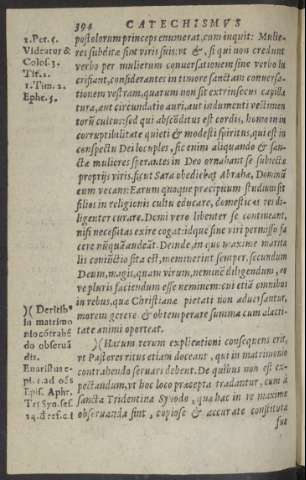 394 CATECHISMVS
1. Pet. 3.
Videatur &
Colos. 3.
Tit. 2.
1. Tim. 2.
Ephe. 5.
postolorum princeps enumerat, cum inquit: Mulie-
res subditæ sint viris suis: vt &, si qui non credunt
verbo per mulierum conuersationem sine verbo lu
crifiant, considerantes in timore sanctam conuersa-
tionem vestram, quarum non sit extrinsecus capilla
tura, aut circundatio auri, aut indumenti vestimen
torũ cultus: sed qui abscõditus est cordis, homo in in
corruptibilitate quieti & modesti spiritus, qui est in
conspectu Dei locuples, sic enim aliquando & san-
ctæ mulieres sperantes in Deo ornabant se subiectæ
proprijs viris, sicut Sara obediebat Abrahæ, Dominũ
eum vocans: Earum quoque præcipuum studium sit
filios in religionis cultu educare, domesticas res di-
ligenter curare. Domi vero libenter se contineant,
nisi necessitas exire cogat: idque sine viri permisso fa
cere nũquã audeãt. Deinde, in quo maxime marita
lis coniũctio sita est, meminerint semper, secundum
Deum, magis, quam virum, neminẽ diligendum, eu
ve pluris faciendum esse neminem: cui etiã omnibus
in rebus, quæ Christianæ pietati non aduersantur,
morem gerere & obtemperare summa cum alacri-
tate animi oporteat.
)( De ritib⁹
in matrimo
nio cõtrahẽ
do obseruã
dis.
)( Harum rerum explicationi consequens erit,
vt Pastores ritus etiam doceant, qui in matrimonio
contrahendo seruari debent. De quibus non est ex-
pectandum, vt hoc loco præcepta tradantur, cum à
sancta Tridentina Synodo, quæ hac in re maxime
obseruanda sint, copiose & accurate constituta
fue